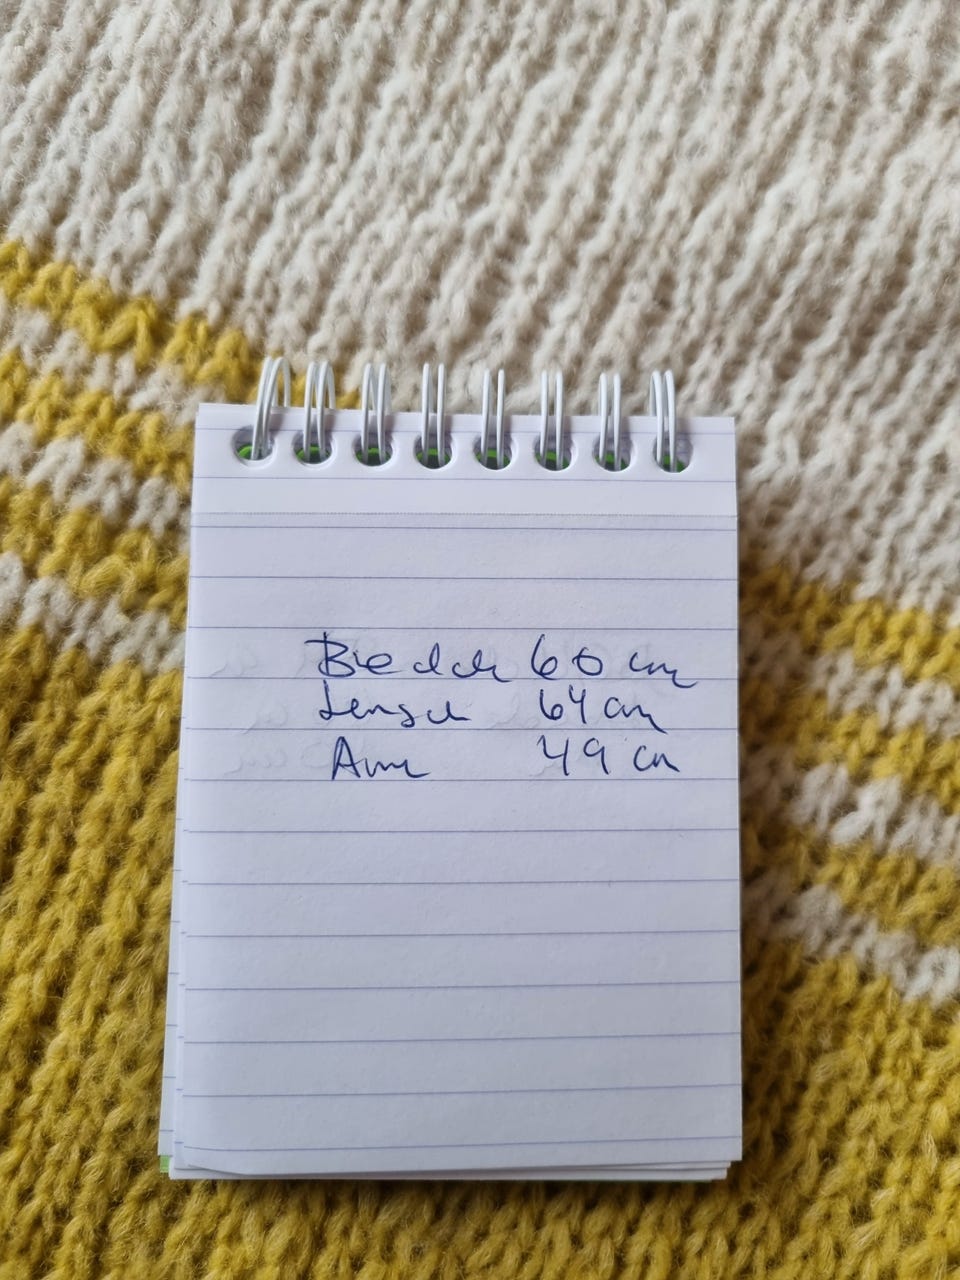 Bredde 60 cm
Lengde 64 cm
Arm 49 cm